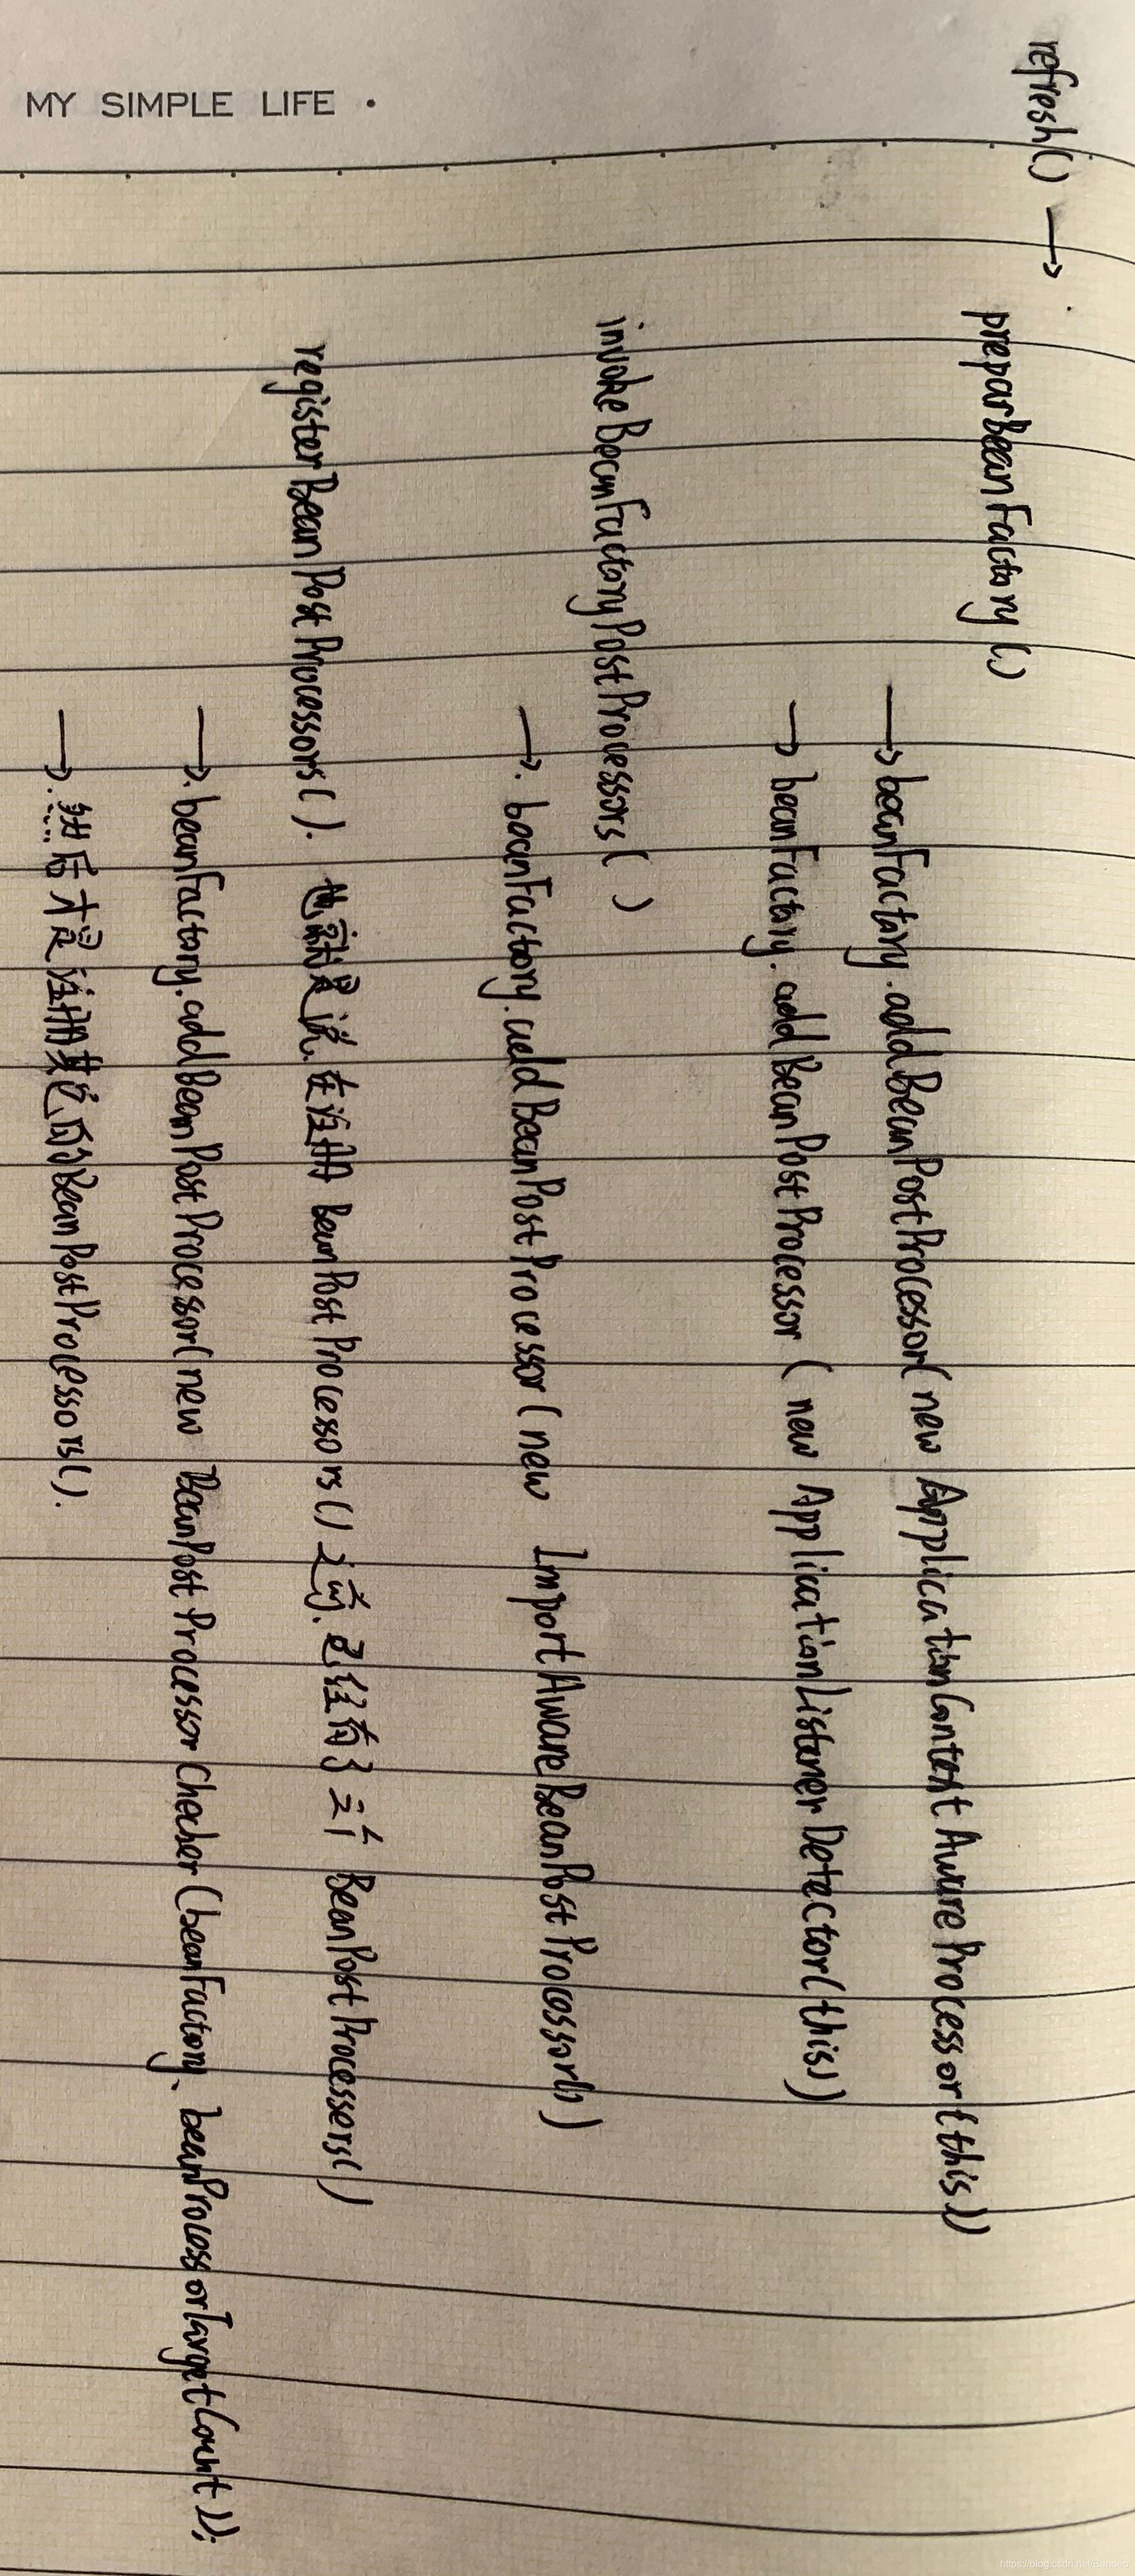 MY SIMPLE LIFE •
refresh() →
preparBeanFactory()
→ beanFactory.addBeanPostProcessor(new ApplicationContextAwareProcessor(this))
→ beanFactory.addBeanPostProcessor(new ApplicationListenerDetector(this))
invokeBeanFactoryPostProcessors()
→ beanFactory.addBeanPostProcessor(new ImportAwareBeanPostProcessor())
registerBeanPostProcessors(). 也就是说.在注册 BeanPostProcessors()之前.已经有了三个 BeanPostProcessers()
→ beanFactory.addBeanPostProcessor(new BeanPostProcessorChecker(beanFactory、beanProcessorTargetCount));
→ 然后才是注册其它的BeanPostProcessors().